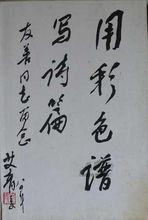 用彩色谱
写诗篇
友善同志 念
艾青